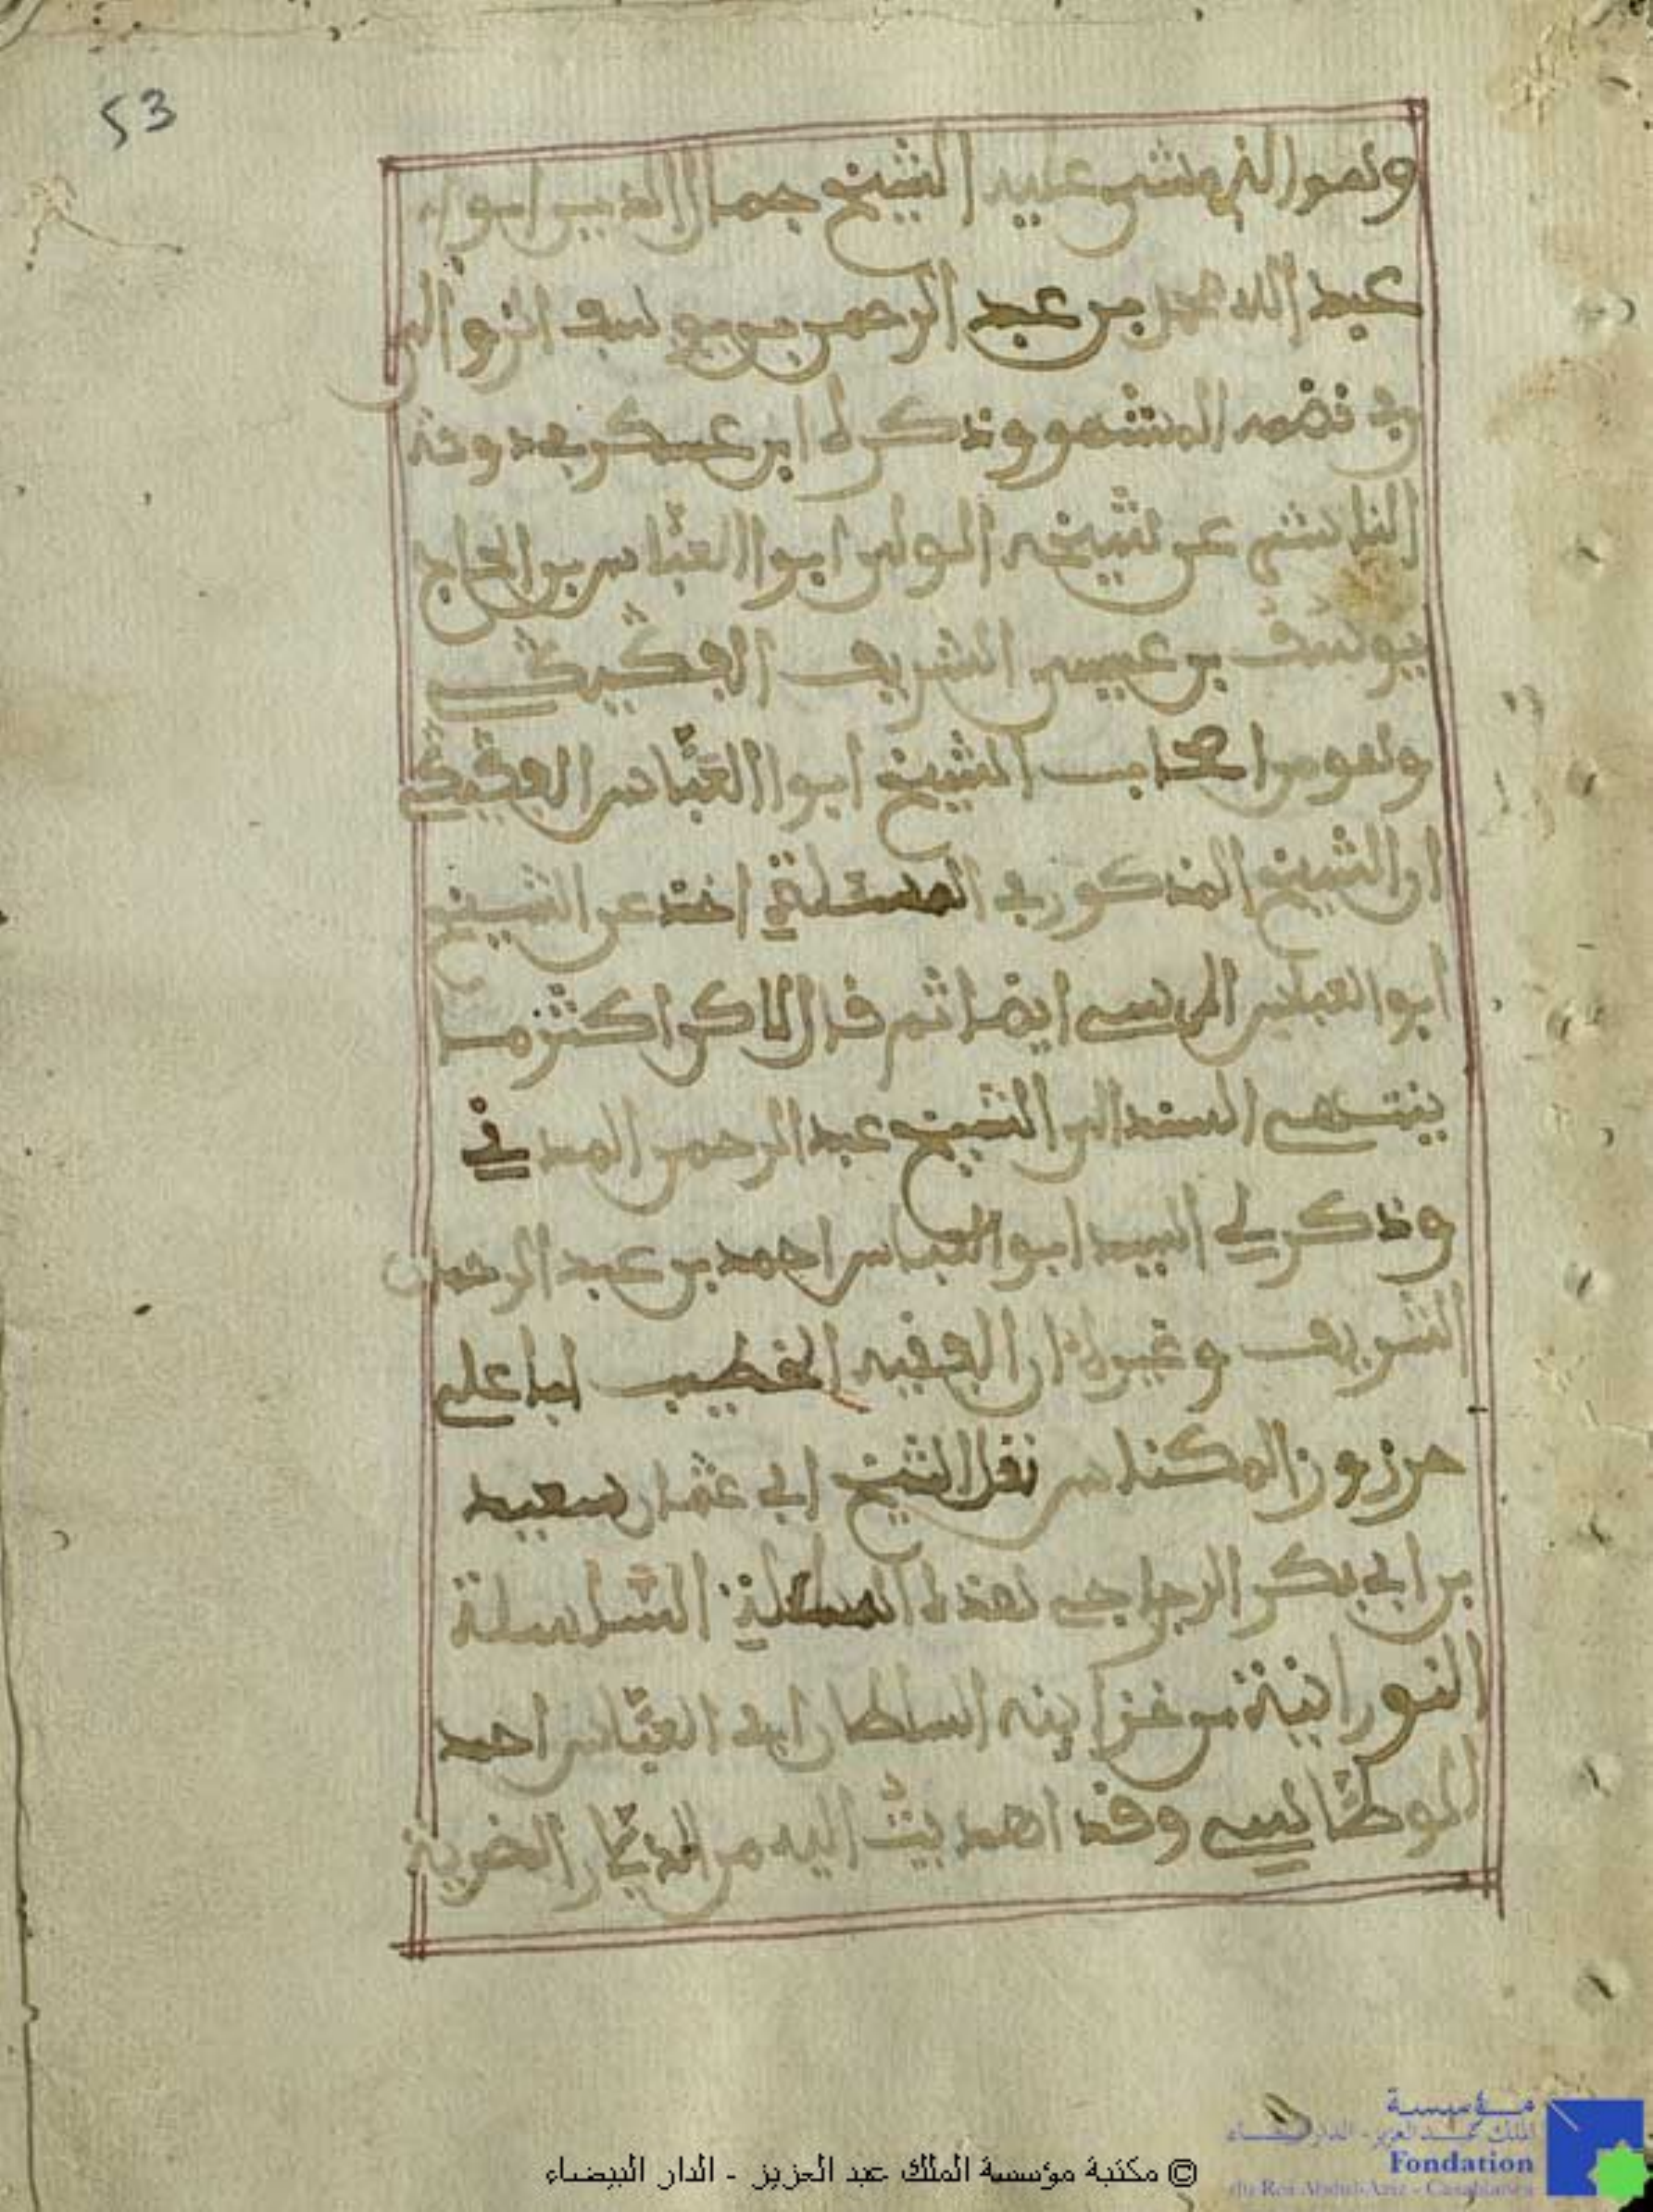 53
وهو الذي مشى عليه الشيخ جمال الدين ابو
عبد الله محمد بن عبد الرحمن بن يوسف الزوالي
في نضمه المشهور وذكره ابن عسكر في دوحة
الناشي عن شيخه الولي ابوا العباس بن الحاج
يوسف بن عيسى الشريف الفڭيڭي
وهو من اصحاب الشيخ ابوا العباس الفڭيڭي
ان الشيخ المذكور في المسئلة اخذ عن الشيخ
ابو العباس المرسي ايضا ثم قال لاكن اكثر ما
ينتهي السند الى الشيخ عبد الرحمن المدني
وذكر لي السيد ابو العباس احمد بن عبد الرحمان
الشريف وغيره ان الفقيه الخطيب ابا علي
حرزوز المكناسي نقل الشيخ ابي عثمان سعيد
بن ابي بكر الرجراجي هذه السلسلة
النورانية من خزاينه السلطان ابي العباس احمد
الوطاسي وقد اهديت اليه من الديار
© مكتبة مؤسسة الملك عبد العزيز - الدار البيضاء
مؤسسة
الملك عبد العزيز - الدار البيضاء
Fondation
du Roi Abdul-Aziz - Casablanca